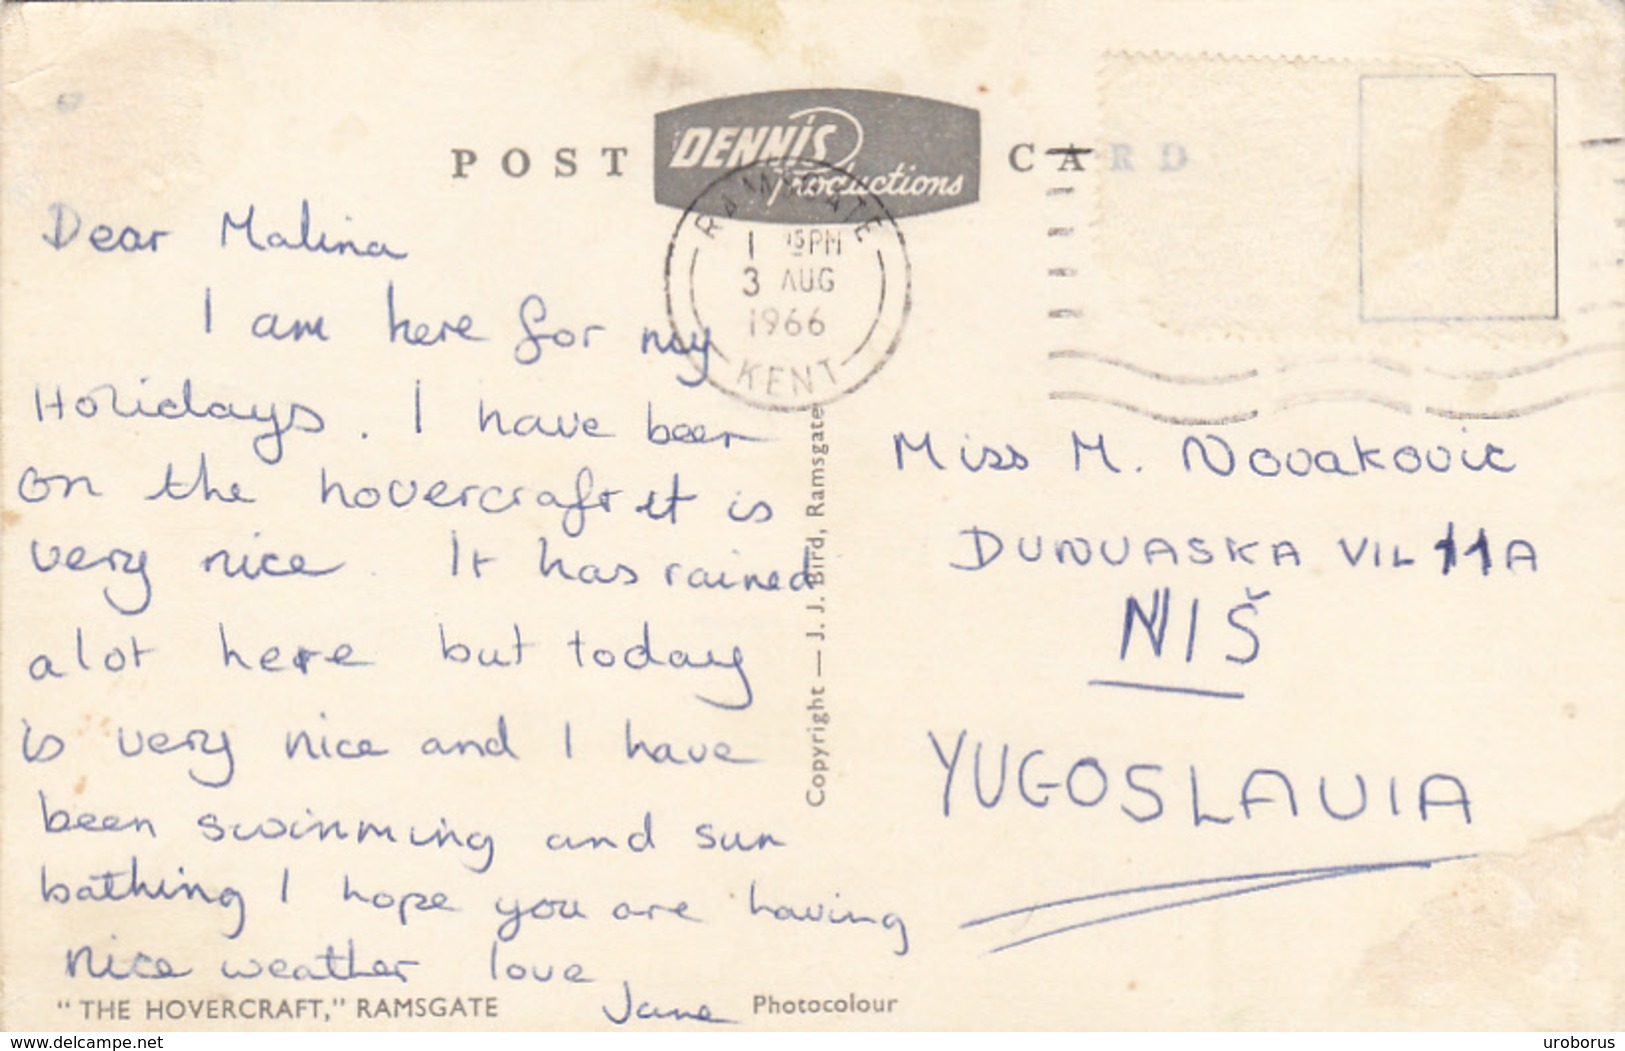 67
POST CARD
DENNIS
Productions
RAMSGATE
1 15PM
3 AUG
1966
KENT
Dear Malina
I am here for my
Holidays. I have been
on the hovercraft it is
very nice. It has rained
alot here but today
is very nice and I have
been swimming and sun
bathing I hope you are having
nice weather love
Jane
Copyright — J. J. Bird, Ramsgate
Miss M. Novakovic
DUNVASKA VIL 11A
NIŠ
YUGOSLAVIA
"THE HOVERCRAFT," RAMSGATE
Photocolour
www.delcampe.net
uroborus